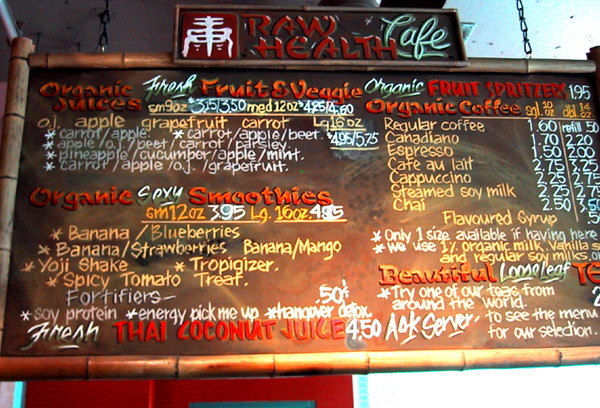 RAW HEALTH Cafe
Organic Juices Fresh Fruit & Veggie
sm 9oz 3.15/3.50 med 12oz 4.25/4.60
o.j. apple grapefruit carrot Lg 16 oz
* carrot/apple. * carrot/apple/beet. 4.95/5.75
* apple/o.j./beet/carrot/parsley.
* pineapple/cucumber/apple/mint.
* carrot/apple/o.j./grapefruit.
Organic Sexy Smoothies
sm 12oz 3.95 Lg. 16oz. 4.95
* Banana/Blueberries
* Banana/Strawberries Banana/Mango
* Yoji Shake * Tropigizer.
* Spicy Tomato Treat.
Fortifiers— .50¢
* soy protein * energy pick me up * hangover detox.
Fresh THAI COCONUT JUICE 4.50
Organic FRUIT SPRITZERS 1.95
Organic Coffee sgl. 10 oz dbl. 14 oz.
Regular coffee 1.60 refill .50
Canadiano 1.70 2.20
Espresso 1.50 2.00
Cafe au lait 2.75
Cappuccino
Steamed soy milk
Chai 2.50
Flavoured Syrup .50
* Only 1 size available if having here
* We use 1% organic milk, Vanilla
and regular soy milks.
Beautiful Looseleaf
* Try one of our teas from
around the world.
Ask Server. to see the menu
for our selection.